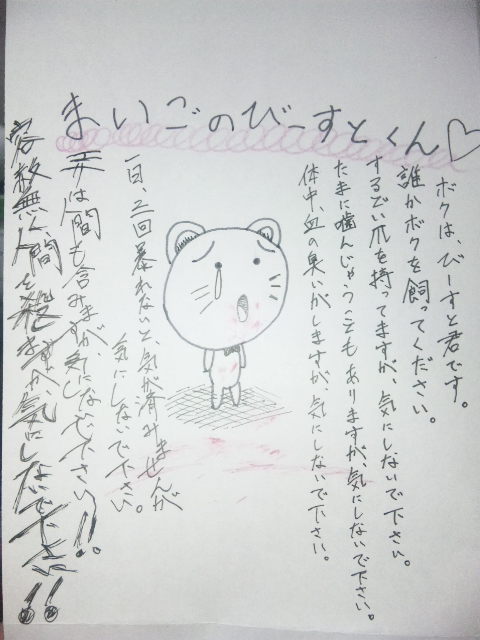 まいごのびーすとくん♡
ボクは、びーすと君です。
誰かボクを飼ってください。
するどい爪を持ってますが、気にしないで下さい。
たまに噛んじゃうこともありますが、気にしないで下さい。
体中、血の臭いがしますが、気にしないで下さい。
一日、三回暴れないと、気が済みませんが
気にしないで下さい。
は人間も含みますが、気にしないで下さい!!。
容赦無く人間を殺しますが、気にしないで下さい!!